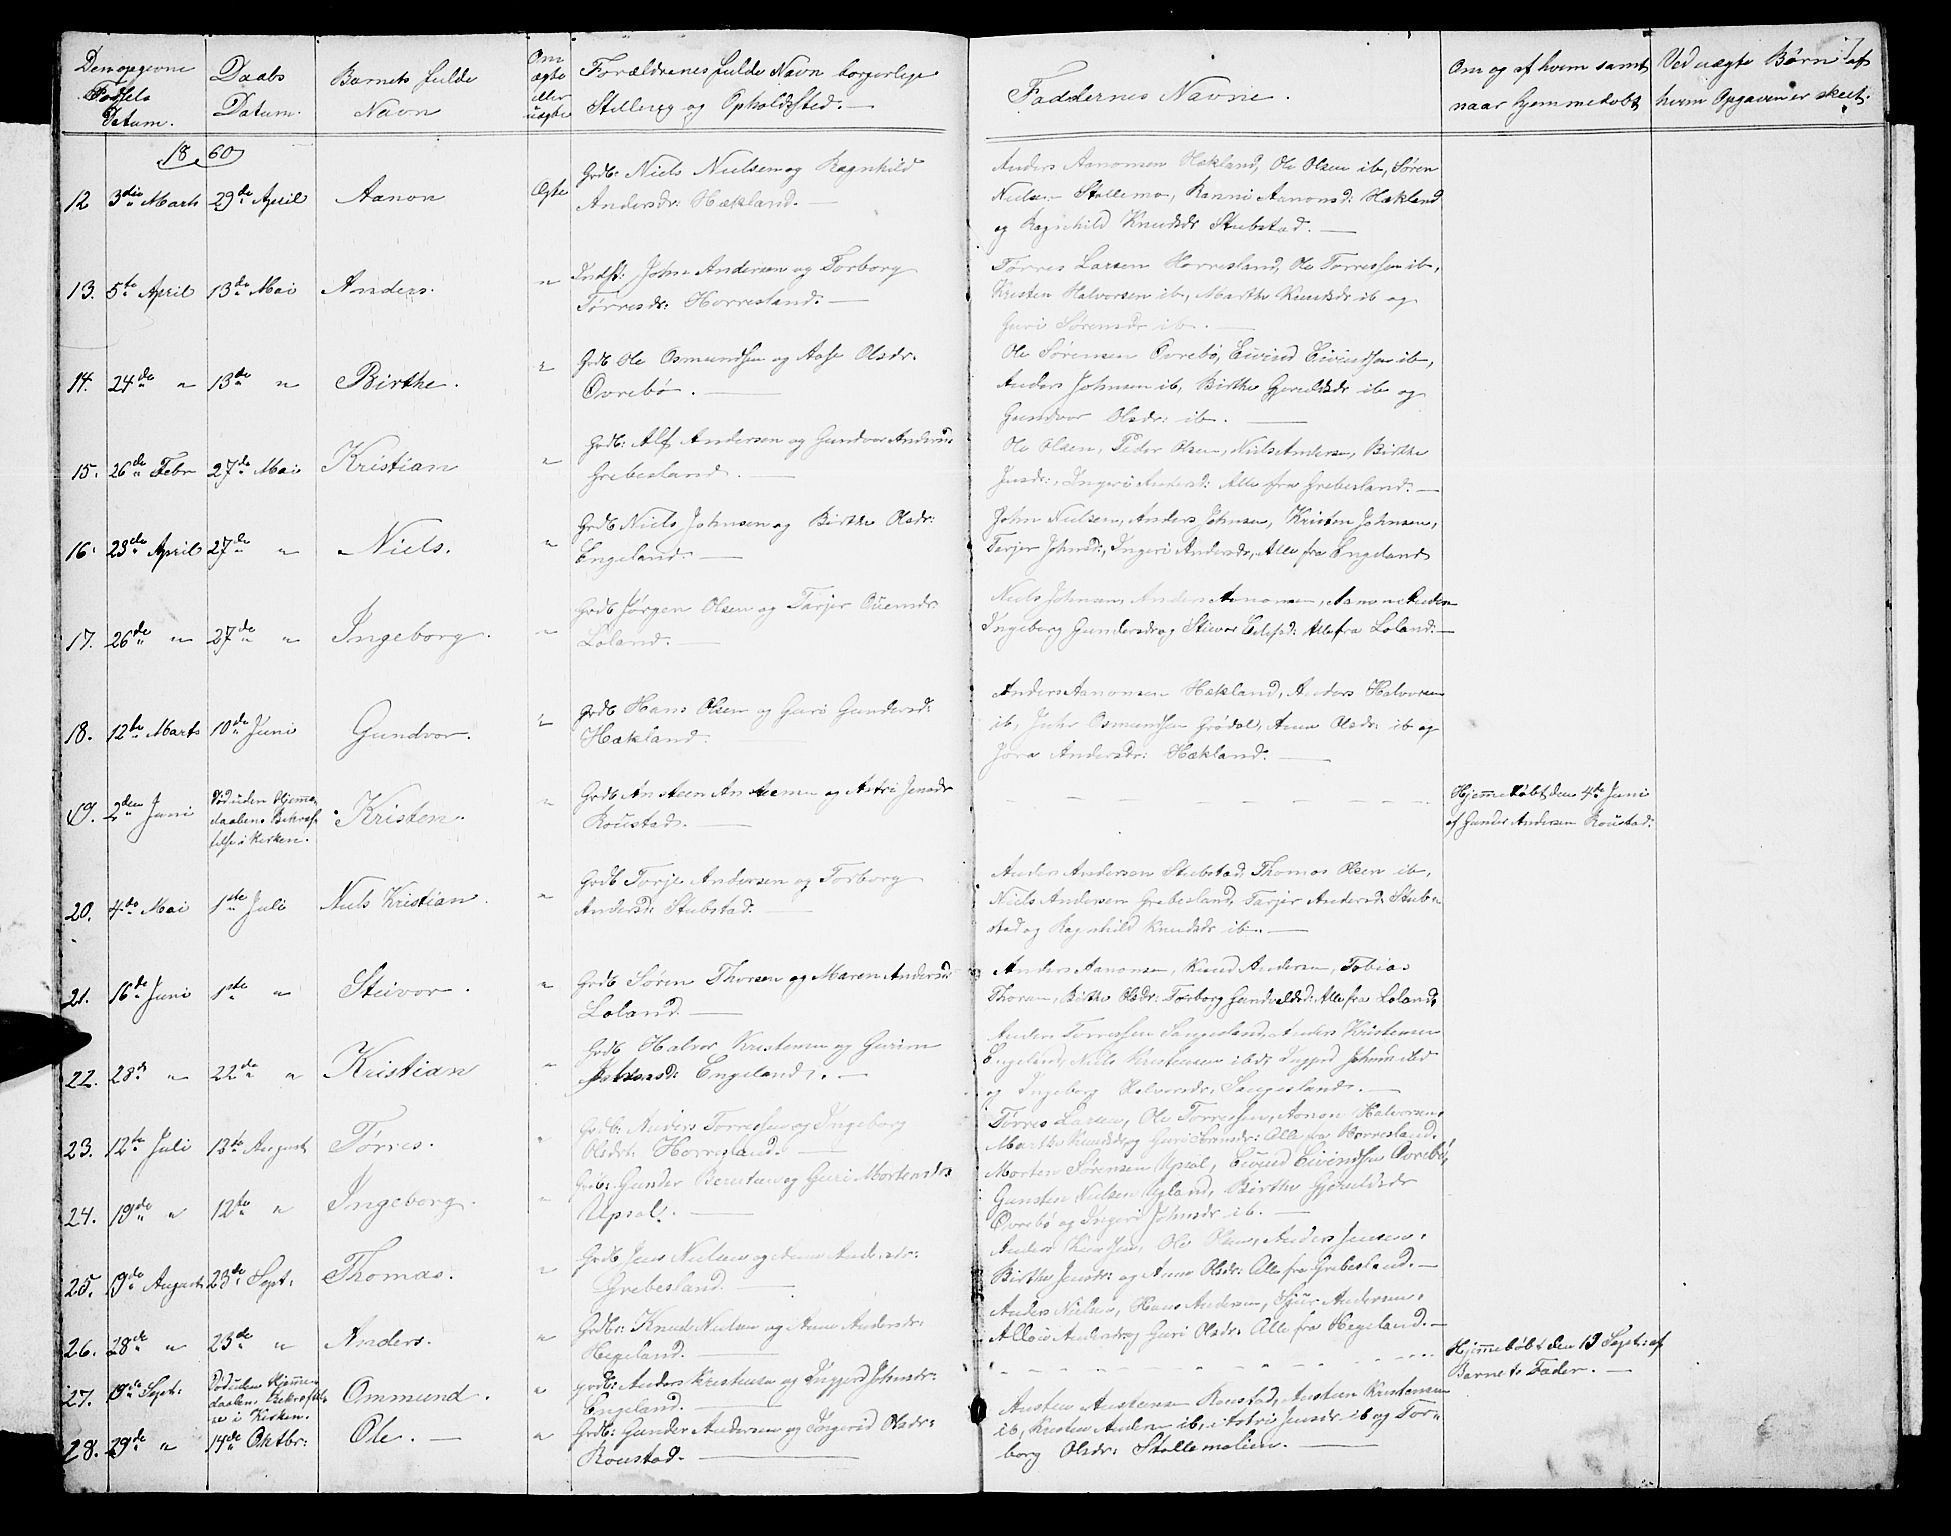 Den opgevne
Fødsels
Datum.
Daabs
Datum.
Barnets fulde
Navn
Om
ægte
eller
uægte
Forældrenes fulde Navn borgerlige
Stilling og Opholdsted. —
Faddernes Navne.
Om og af hvem samt
naar hjemmedøbt
Ved uægte Børn af
hvem Opgaven er skeet.
7
1860
12 3die Marts 29de April Aanon Ægte
Grdb: Niels Nielsen og Ragnhild
Andersdr: Hækland. —
Anders Aanonsen Hækland, Ole Olsen ib, Søren
Nielsen Stallemo, Ranni Aanonsd: Hækland
og Ragnhild Knudsdr Stubstad. —
13. 5te April 13de Mai Anders. "
Indst: John Andersen og Torborg
Tørresdr: Horresland. —
Tørres Larsen Horresland, Ole Torressen ib,
Kristen Halvorsen ib, Marthe Knudsdr ib og
Guri Sørensdr ib. —
14. 24de " 13de " Birthe. "
Grdb Ole Osmundsen og Aase Olsdr:
Øvrebø. —
Ole Sørensen Øvrebø, Eivind Eivindsen ib,
Anders Johnsen ib, Birthe Gjeruldsdr ib og
Gundvor Olsdr: ib. —
15. 26de Febr 27de Mai Kristian "
Grdb: Alf Andersen og Gundvor Anders:
Grebesland. —
Ole Olsen, Peder Olsen, Niels Andersen, Birthe
Jensdr:, Ingeri Andersd: Alle fra Grebesland. —
16. 23de April 27de " Niels. "
Grdb Niels Johnsen og Birthe Olsdr:
Engeland. —
John Nielsen, Anders Johnsen, Kristen Johnsen,
Tarjer Johnsd:, Ingeri Andersdr, Alle fra Engeland
17. 26de " 27de " Ingeborg. "
Grdb Jørgen Olsen og Tarjer Ouensdr
Løland. —
Niels Johnsen, Anders Aanonsen, Aanon
Ingeborg Gundersdr og Stivor Alle fra Løland. —
18. 12te Marts 10de Juni Gundvor. "
Grdb Hans Olsen og Guri Gundersd:
Hækland.
Anders Aanonsen Hækland, Anders Halvorsen
ib, John Osmundsen Grødal, Anne Olsdr: ib og
Jøra Andersdr: Hækland. —
19. 2den Juni Død uden Hjemme-
daabens Bekræf-
telse i Kirken. Kristen. "
Grdb Ansteen Anstensen og Astri Jensdr
Roustad. —
Hjemmedøbt den 4de Juni
af Gunder Andersen Roustad.
20. 4de Mai 1ste Juli Niels Kristian. "
Grdb Torje Andersen og Torborg
Andersd: Stubstad. —
Anders Andersen Stubstad, Thomas Olsen ib,
Niels Andersen Grebesland, Tarjer Andersd: Stub-
stad og Ragnhild Knudsdr ib. —
21. 16de Juni 1ste " Steivor. "
Grdb Søren Thorsen og Maren Andersd:
Løland. —
Anders Aanonsen, Knud Andersen, Tobias
Thorsen, Birthe Olsdr: Torborg Gundvaldsd: Alle fra Løland.
22. 28de " 22de " Kristian "
Grdb Halvor Kristensen og Gurine
Johnsd: Engeland. —
Anders Torressen Sangesland, Anders Kristensen
Engeland, Niels Kristensen ibd: Inggerd Johnsd: ibd
og Ingeborg Halvorsdr: Sangesland. —
23. 12te Juli 12te August Tørres. "
Grdb: Anders Torressen og Ingeborg
Olsdr: Horresland. —
Tørres Larsen, Ole Torressen, Aanon Halvorsen,
Marthe Knudsdr og Guri Sørensdr: Alle fra Horresland.
24. 19de " 12te " Ingeborg. "
Grdb: Gunder Berntsen og Guri Mortensdr
Upsal. —
Morten Sørensen Upsal, Eivind Eivindsen Øvrebø,
Gunsten Nielsen Ugland, Birthe Gjeruldsdr
Øvrebø og Ingeri Johnsdr ib. —
25. 19de August 23de Sept: Thomas. "
Grdb Jens Nielsen og Anne Andersdr:
Grebesland. —
Anders Knudsen, Ole Olsen, Anders Jensen,
Birthe Jensdr: og Anne Olsdr: Alle fra Grebesland. —
26. 28de " 23de " Anders. "
Grdb: Knud Nielsen og Anne Andersdr:
Hegeland. —
Anders Nielsen, Hans Andersen, Sjur Andersen,
Andersdr og Guri Olsdr: Alle fra Hegeland. —
27. 19de Sept: Død uden Hjemme-
daabens Bekræftel-
se i Kirken. Ommund. "
Grdb: Anders Kristensen og Inggerd Johnsdr:
Engeland. —
Hjemmedøbt den 19 Sept: af
Barnets Fader. —
28. 29de " 14de Oktbr: Ole. — "
Grdb: Gunder Andersen og Ingerid Olsdr:
Roustad. —
Ansten Anstensen Roustad, Ansten Kristensen
ib, Kristen Andersen ib, Astri Jensdr ib og Tor-
borg Olsdr: Stallemolien. —